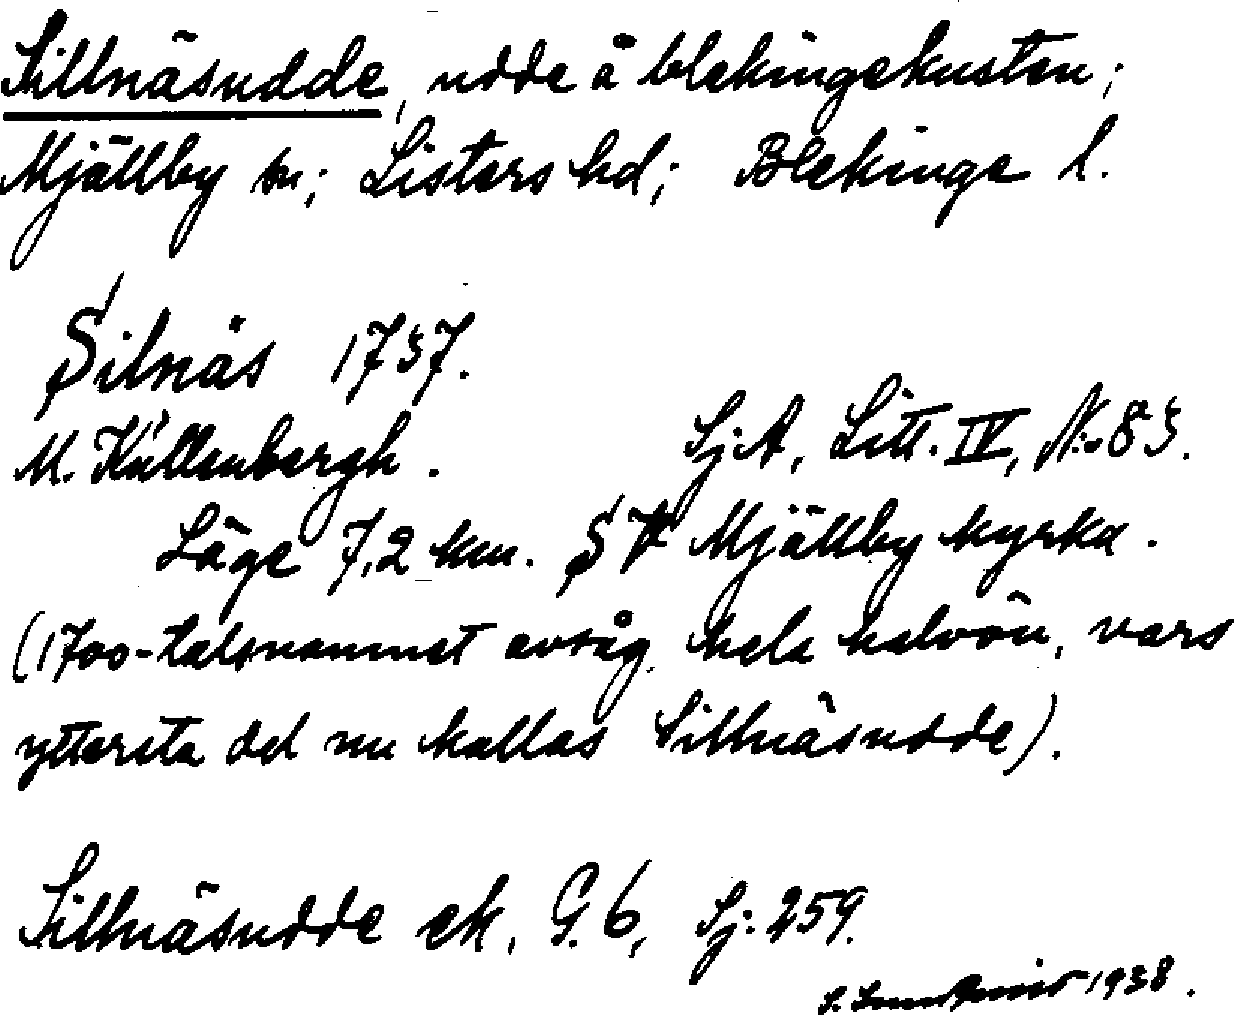 Sillnäsudde, udde å blekingekusten;
Mjällby sn; Listers hd; Blekinge l.
Silnäs 1737.
M. Küllenbergh. Sj.A, Litt. IV, No 83.
Läge 7,2 km. SV Mjällby kyrka.
(1700-talsnamnet avsåg hela halvön, vars
yttersta del nu kallas Sillnäsudde).
Sillnäsudde ek, G. 6, Sj: 259.
1938.